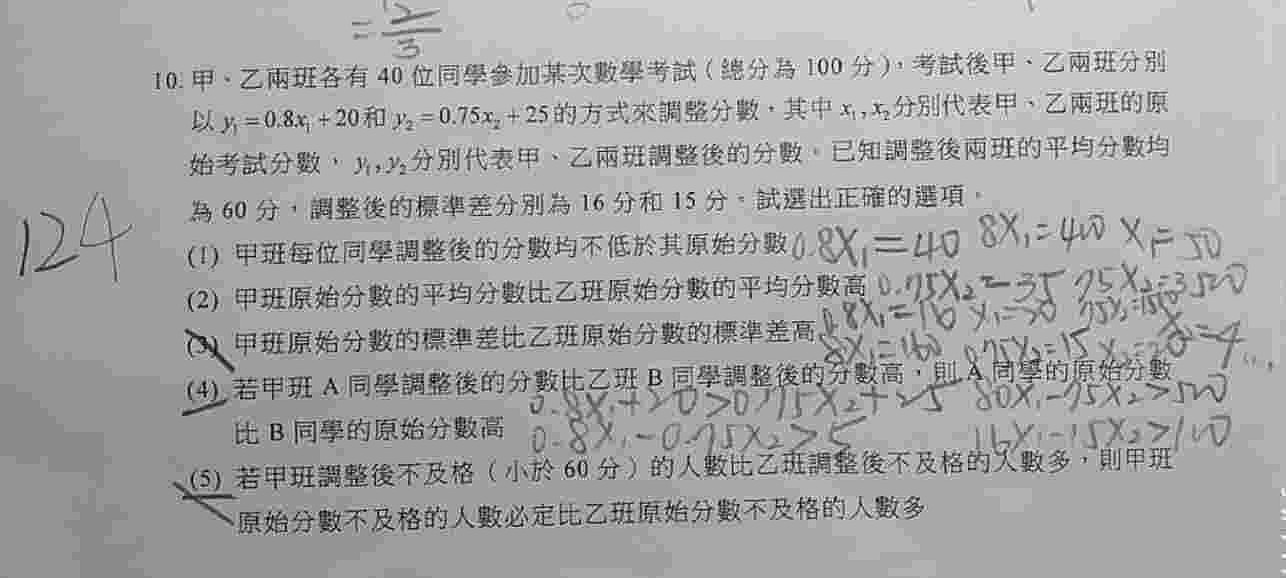 = 2/3
10. 甲、乙兩班各有 40 位同學參加某次數學考試（總分為 100 分），考試後甲、乙兩班分別
以 y₁ = 0.8x₁ + 20 和 y₂ = 0.75x₂ + 25 的方式來調整分數，其中 x₁, x₂ 分別代表甲、乙兩班的原
始考試分數， y₁, y₂ 分別代表甲、乙兩班調整後的分數。已知調整後兩班的平均分數均
為 60 分，調整後的標準差分別為 16 分和 15 分。試選出正確的選項。
124
(1) 甲班每位同學調整後的分數均不低於其原始分數 0.8X₁ = 40 8X₁ = 400 X₁ = 50
(2) 甲班原始分數的平均分數比乙班原始分數的平均分數高 0.75X₂ = 35 75X₂ = 3500
(3) 甲班原始分數的標準差比乙班原始分數的標準差高 0.8X₁ = 16 75X₂ = 1500
8X₁ = 160 0.75X₂ = 15
(4) 若甲班 A 同學調整後的分數比乙班 B 同學調整後的分數高，則 A 同學的原始分數
0.8X₁ + 20 > 0.75X₂ + 25 80X₁ - 75X₂ > 500
比 B 同學的原始分數高 0.8X₁ - 0.75X₂ > 5 16X₁ - 15X₂ > 100
(5) 若甲班調整後不及格（小於 60 分）的人數比乙班調整後不及格的人數多，則甲班
原始分數不及格的人數必定比乙班原始分數不及格的人數多